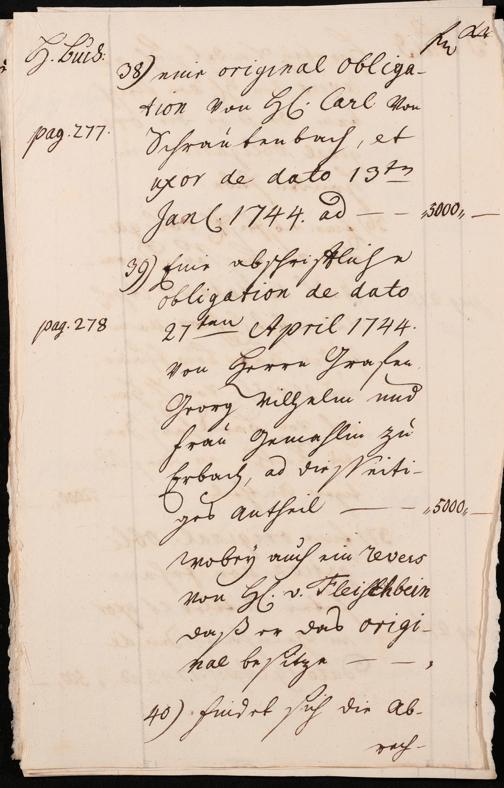 38) eine original obliga-
tion von H. Carl von
pag. 277.
Schrautenbach, et
uxor de dato 13ten
Jan. 1744. ad — — „5000„ —
39) Eine abschriftliche
obligation de dato
pag. 278
27ten April 1744.
von Herrn Grafen
Georg Wilhelm und
Frau Gemahlin zu
Erbach, ad diesseiti-
ges Antheil — — „5000„ —
wobey auch ein revers
von H. v. Fleischbein
daß er das origi-
nal besitze — — ,
40) findet sich die Ab-
rech-